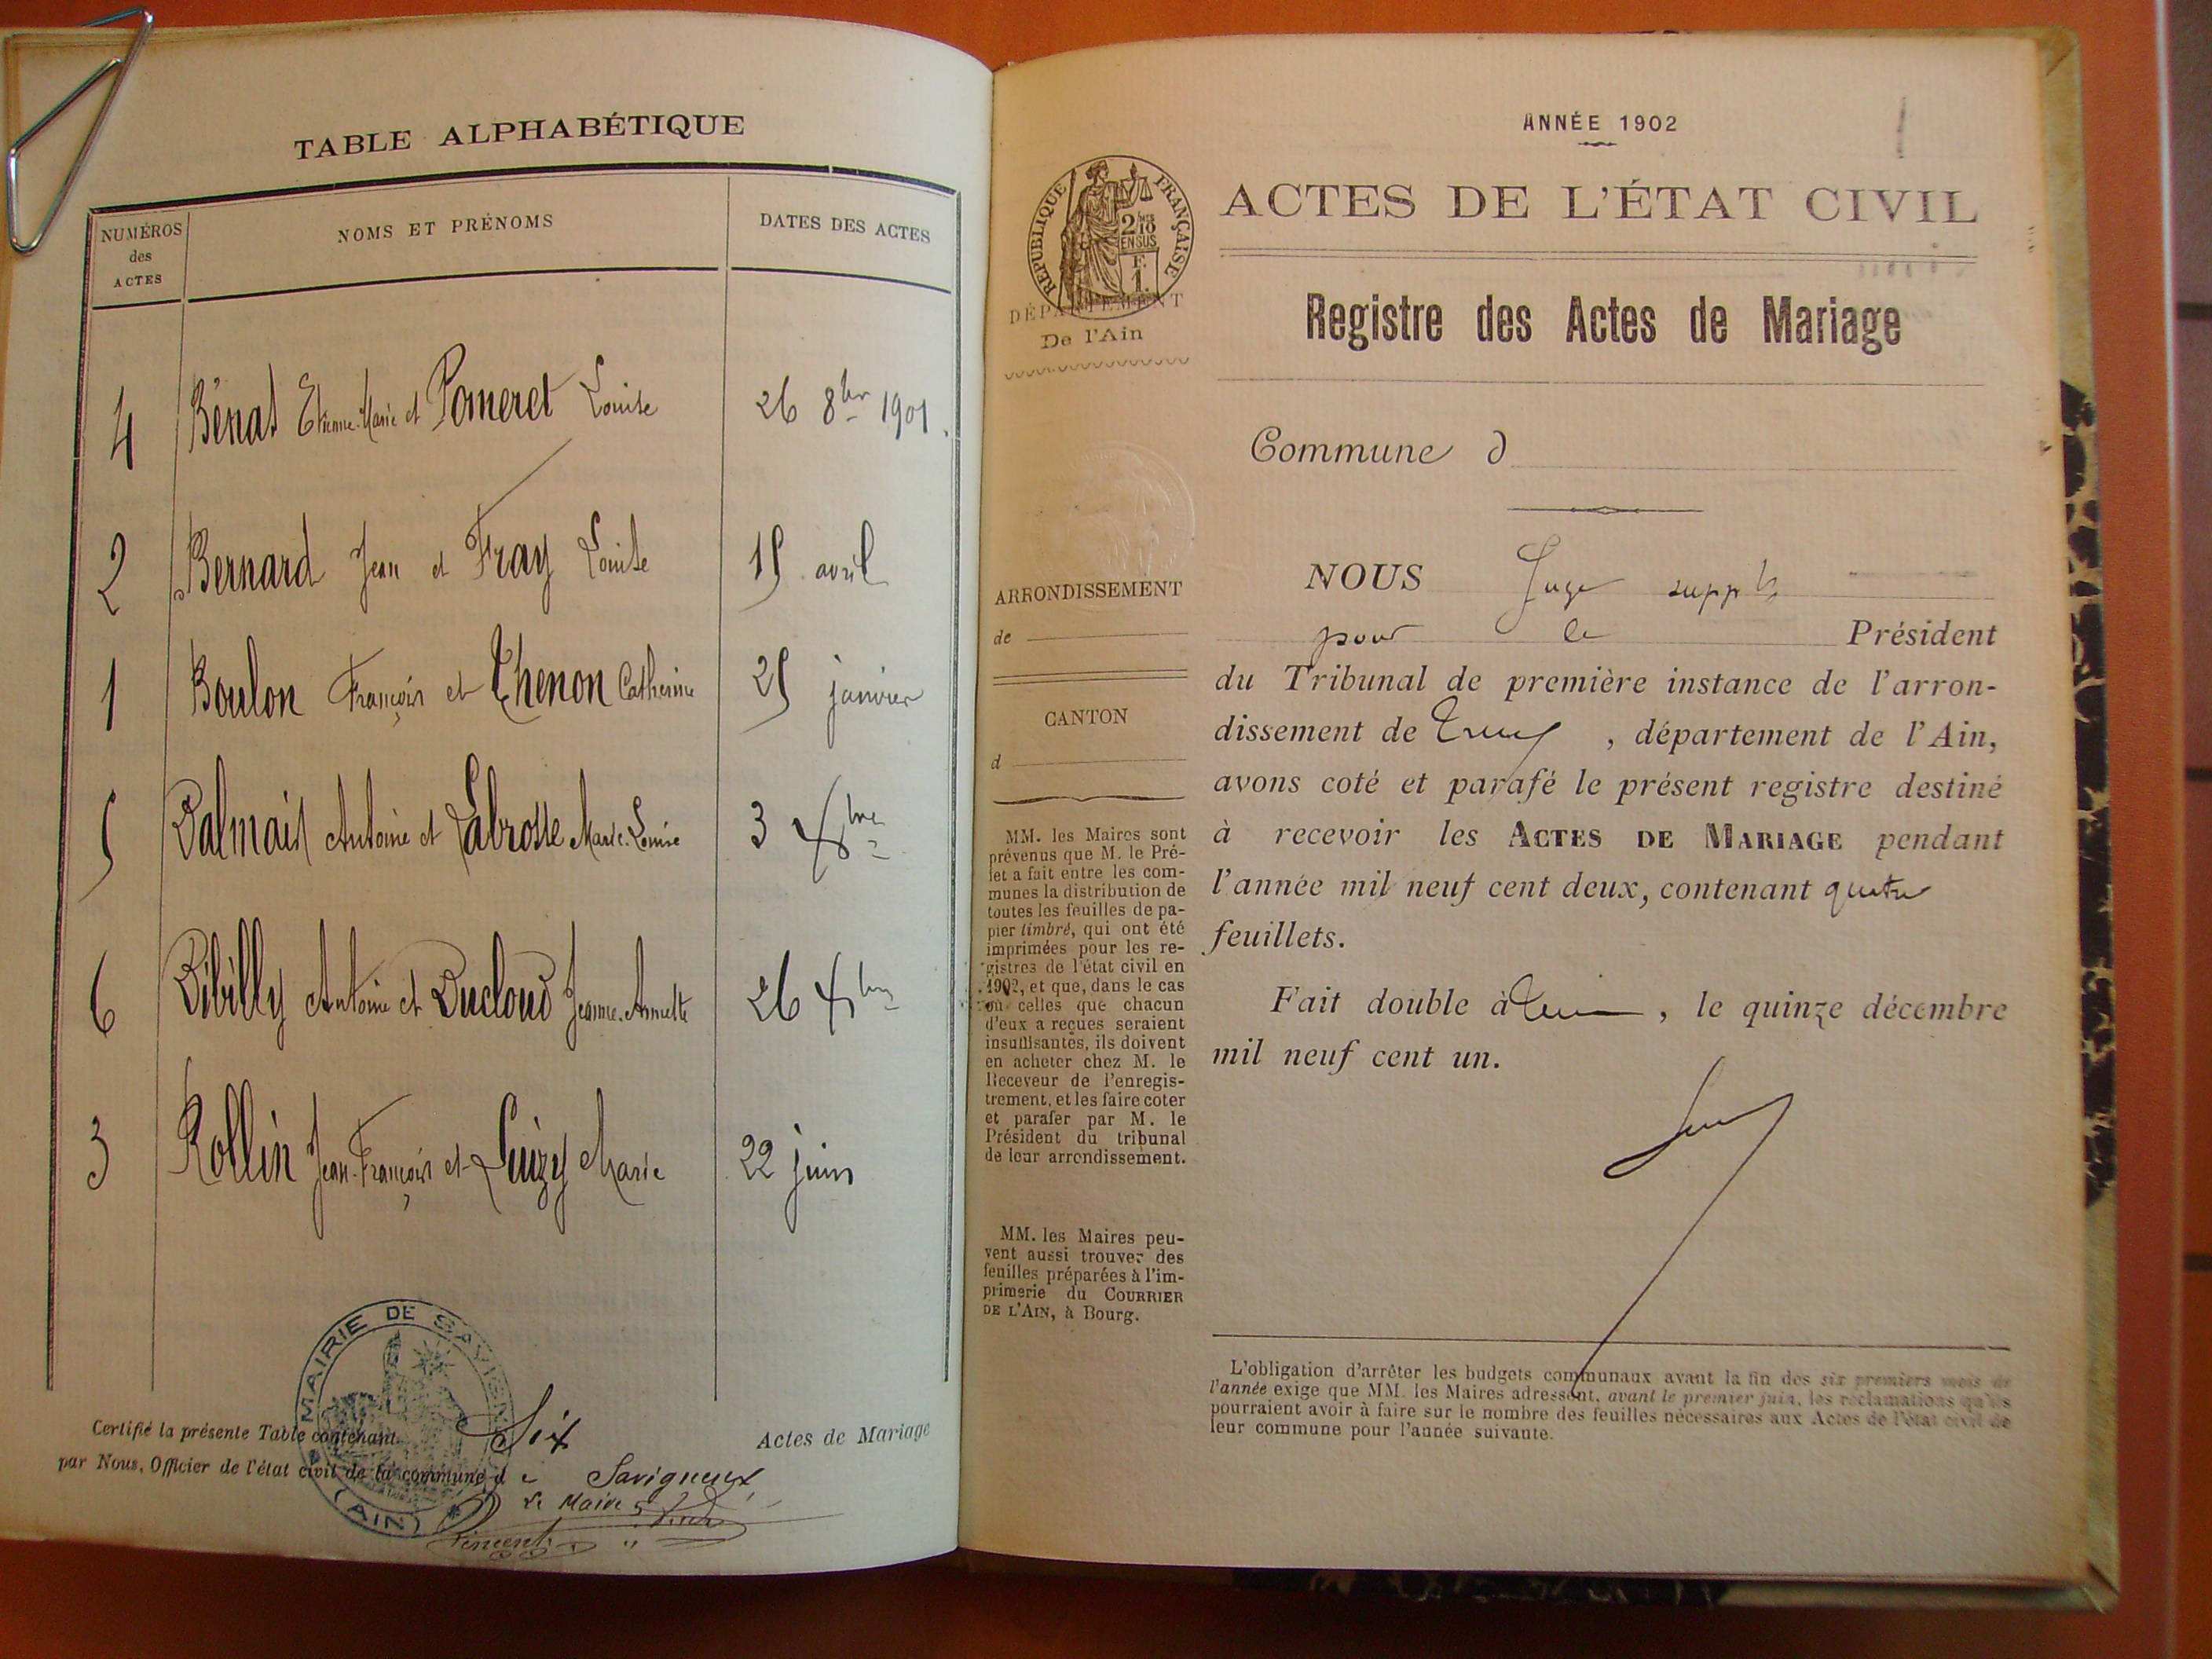 TABLE ALPHABÉTIQUE
NUMÉROS
des
ACTES
NOMS ET PRÉNOMS
DATES DES ACTES
4 Bénat Etienne-Marie et Pomeret Louise 26 8bre 1901.
2 Bernard Jean et Fray Louise 15 avril
1 Boulon François et Thenon Catherine 25 janvier
5 Dalmais Antoine et Labrosse Marie-Louise 3 Xbre
6 Dibilly Antoine et Ducloud Jeanne-Annette 26 Xbre
3 Rollin Jean-François et Luizy Marie 22 juin
MAIRIE DE SAVIGNEUX
(AIN)
Certifié la présente Table contenant Six Actes de Mariage
par Nous, Officier de l'état civil de la commune d e Savigneux
Le Maire
Vincent
ANNÉE 1902
1
RÉPUBLIQUE FRANÇAISE
2/10
EN SUS
F.
1.
DÉPARTEMENT
De l'Ain
ACTES DE L'ÉTAT CIVIL
Registre des Actes de Mariage
Commune d
ARRONDISSEMENT
de
CANTON
d
MM. les Maires sont
prévenus que M. le Pré-
fet a fait entre les com-
munes la distribution de
toutes les feuilles de pa-
pier timbré, qui ont été
imprimées pour les re-
gistres de l'état civil en
1902, et que, dans le cas
où celles que chacun
d'eux a reçues seraient
insuffisantes, ils doivent
en acheter chez M. le
Receveur de l'enregis-
trement, et les faire coter
et parafer par M. le
Président du tribunal
de leur arrondissement.
MM. les Maires peu-
vent aussi trouver des
feuilles préparées à l'im-
primerie du COURRIER
DE L'AIN, à Bourg.
NOUS Juge suppt
pour le Président
du Tribunal de première instance de l'arron-
dissement de , département de l'Ain,
avons coté et parafé le présent registre destiné
à recevoir les ACTES DE MARIAGE pendant
l'année mil neuf cent deux, contenant quatre
feuillets.
Fait double à , le quinze décembre
mil neuf cent un.
L'obligation d'arrêter les budgets communaux avant la fin des six premiers mois de
l'année exige que MM. les Maires adressent, avant le premier juin, les réclamations qu'ils
pourraient avoir à faire sur le nombre des feuilles nécessaires aux Actes de l'état civil de
leur commune pour l'année suivante.